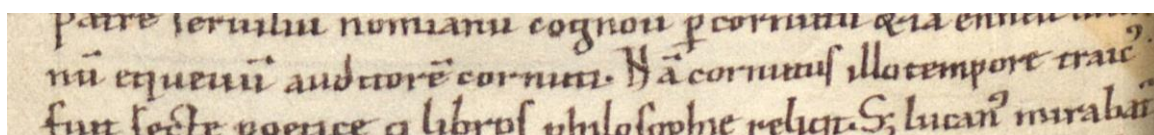 patre seruiliu nomianu cognou ꝑ cornutu & iā enneu
nū equeuū auditorē cornuti. Nā cornutus illo tempore traic᷒
fuit secte poetice q libros philosophie reliqt. Sꝫ lucan᷒ mirabat̄